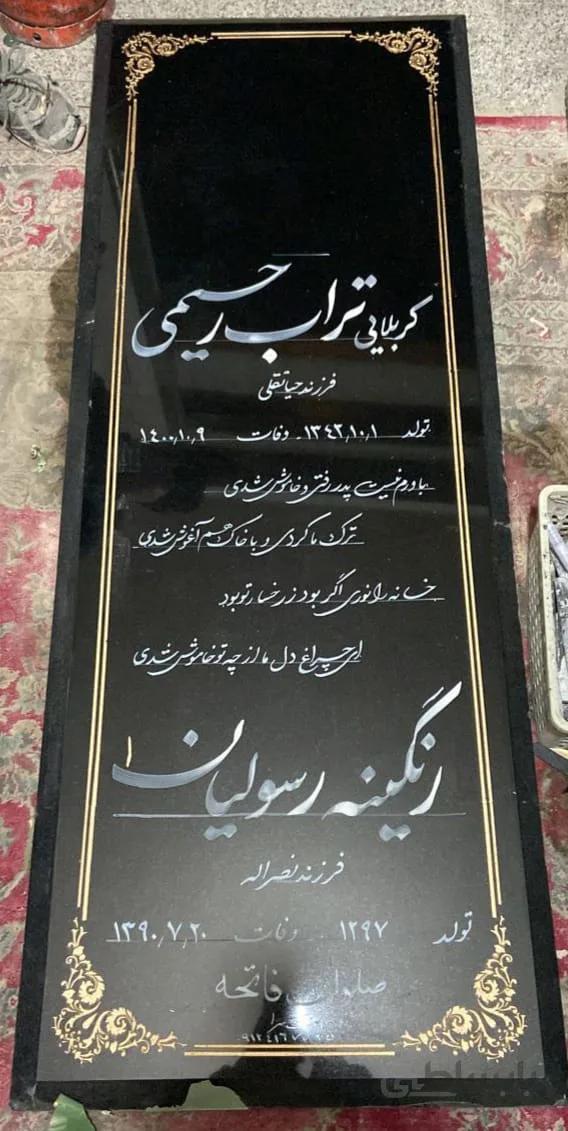 کربلایی تراب رحیمی
فرزند حیاتقلی
تولد ۱۳۴۲,۱۰,۱ - وفات ۱۴۰۰,۱۰,۹
باورم نیست پدر رفتی و خاموش شدی
ترک ما کردی و با خاک هم آغوش شدی
خانه را نوری اگر بود ز رخسار تو بود
ای چراغ دل ما از چه تو خاموش شدی
رنگینه رسولیان
فرزند نصراله
تولد ۱۲۹۷ وفات ۱۳۹۰,۷,۲۰
صلوات فاتحه